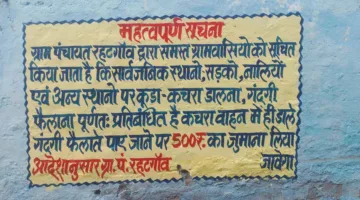 महत्वपूर्ण सूचना
ग्राम पंचायत रहटगाँव द्वारा समस्त ग्रामवासियो को सूचित
किया जाता है कि सार्वजनिक स्थानो, सड़को, नालियों
एवं अन्य स्थानो पर कूड़ा-कचरा डालना, गंदगी
फैलाना पूर्णतः प्रतिबंधित है कचरा वाहन में ही डाले
गंदगी फैलाते पाए जाने पर 500रु. का जुर्माना लिया
आदेशानुसार ग्रा. पं. रहटगाँव जावेगा